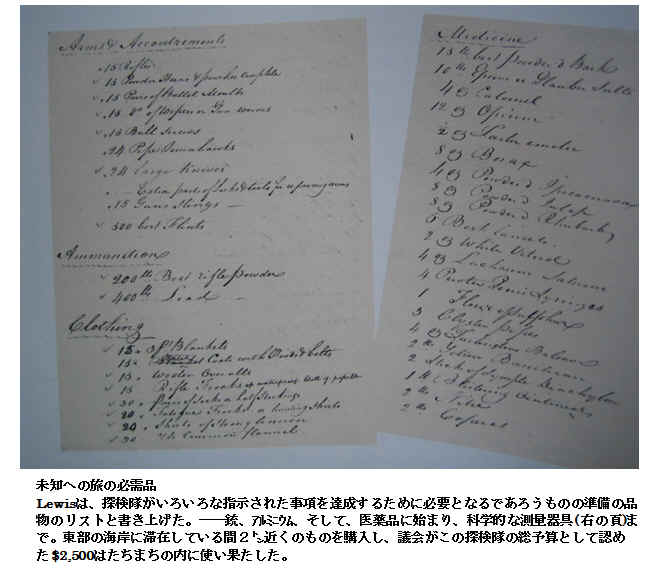 Arms & Accoutrements
15 Rifles
15 Powder Horns & pouches complete
15 Pairs of Bullet Moulds
15 do of Wipers or Gun worms
15 Ball Screws
24 Pipe Tomahawks
24 large Knives
Extra parts of Locks & tools for repairing arms
15 Gun Slings
500 best Flints
Ammunition
200 lb Best rifle powder
400 lb Lead
Clothing
15 3 pt Blankets
15 Coats with Hoods & belts
15 Woolen Overalls
15 Rifle Frocks of waterproof Cloth if possible
30 Pairs of Socks or half Stockings
20 Fatigue Frocks or hunting Shirts
20 Shirts of Strong linnen
20 yds Common flannel
Medicine
15 lb best powder'd Bark
10 lb Epsom or Glauber Salts
4 oz Calomel
12 oz Opium
2 oz Tartar emetic
8 oz Borax
4 oz Powder'd Ipecacuana
8 oz Powder'd Jalap
8 oz Powder'd Rhubarb
6 Best Lancets
2 oz White Vitriol
4 oz Lacteaum Saturni
4 Pewter Penis Syringes
1 Flour of Sulphur
3 Clyster pipes
4 oz Turlingtons Balsam
2 lb Yellow Bascilicum
2 Sticks of Symple Diachylon
1 lb Blistering Ointments
2 lb Nitre
2 lb Coperas
未知への旅の必需品
Lewisは、探検隊がいろいろな指示された事項を達成するために必要となるであろうものの準備の品
物のリストと書き上げた。――銃、ｱﾙﾐﾆｳﾑ、そして、医薬品に始まり、科学的な測量器具(右の頁)ま
で。東部の海岸に滞在している間２㌧近くのものを購入し、議会がこの探検隊の総予算として認め
た $2,500はたちまちの内に使い果たした。